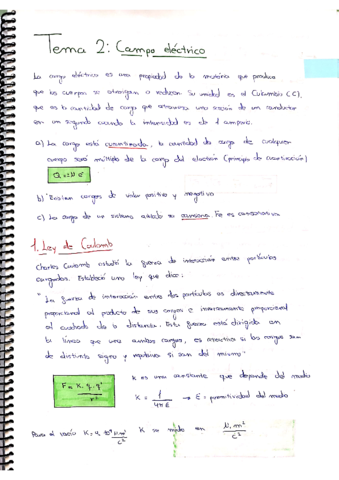 Tema 2: Campo eléctrico
La carga eléctrica es una propiedad de la materia que produce
que los cuerpos se atraigan o repelan. Su unidad es el Culombio (C),
que es la cantidad de carga que atraviesa una sección de un conductor
en un segundo cuando la intensidad es de 1 amperio.
a) La carga está cuantizada, la cantidad de carga de cualquier
cuerpo será múltiplo de la carga del electrón (principio de cuantización)
Q = N·e
b) Existen cargas de valor positivo y negativo
c) La carga de un sistema aislado se conserva. Fe es conservativa
1. Ley de Coulomb
Charles Coulomb estudió la fuerza de interacción entre partículas
cargadas. Estableció una ley que dice:
"La fuerza de interacción entre dos partículas es directamente
proporcional al producto de sus cargas e inversamente proporcional
al cuadrado de la distancia. Esta fuerza está dirigida en
la línea que une ambas cargas, es atractiva si las cargas son
de distinto signo y repulsiva si son del mismo"
F = K·q·q'/r²
K es una constante que depende del medio
K = 1/4πε → ε = permitividad del medio
Para el vacío K = 9·10⁹ N·m²/C² K se mide en N·m²/C²